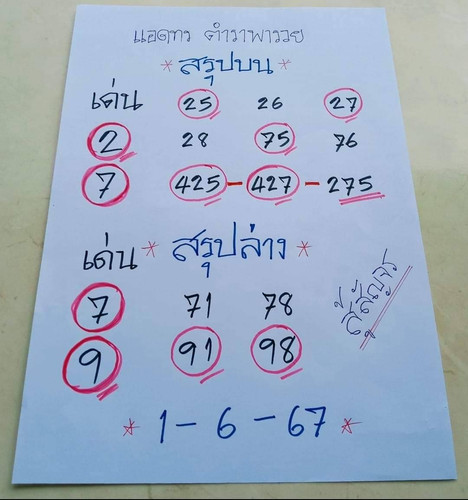 แอดทร ตำราพารวย
* สรุปบน *
เด่น 25 26 27
2 28 75 76
7 425 - 427 - 275
เด่น * สรุปล่าง *
7 71 78
9 91 98
สู้สัญจร
* 1 - 6 - 67 *